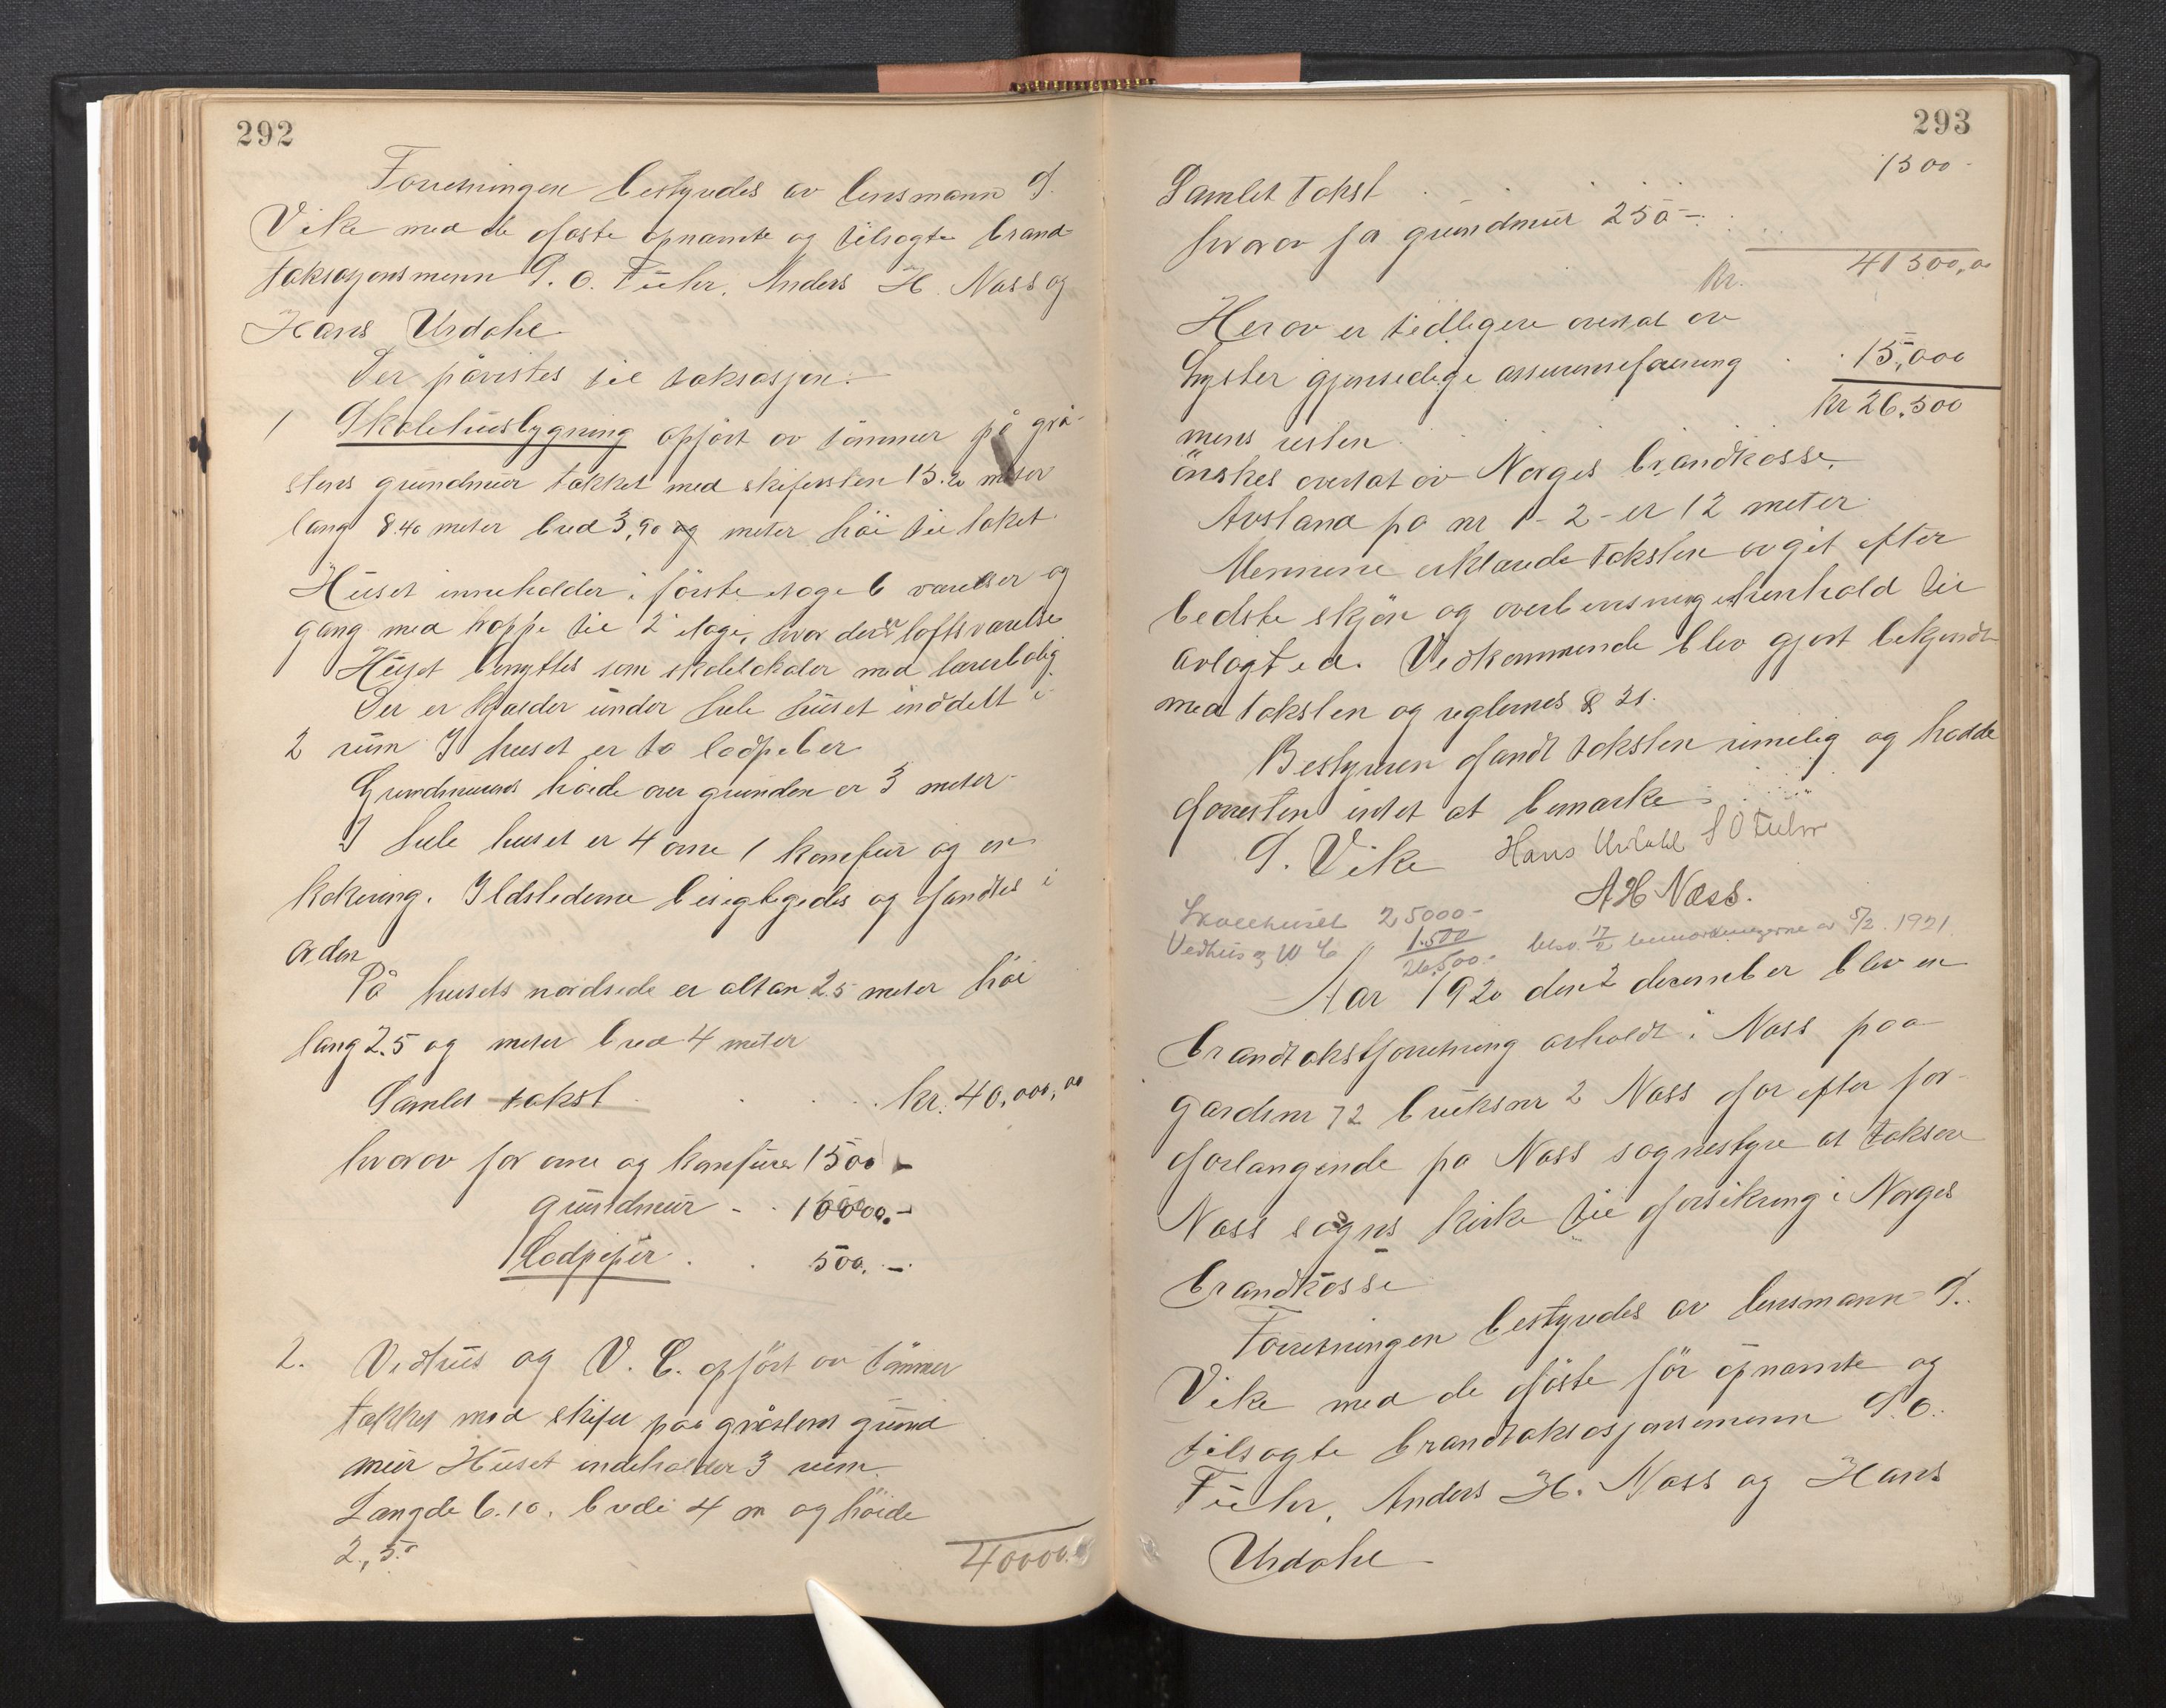 292
Forretningen bestyredes av lensmann S.
Vike med de faste opnævnte og tilsagte brand-
taksasjonsmenn S. O. Fuhr, Anders H. Næss og
Hans Urdahl.
Der påvistes til taksasjon:
1 Skolehusbygning opført av tømmer på grå-
stens grundmur tækket med skifersten 13.20 meter
lang 8.40 meter bred 3,90 og meter høi til taket
Huset inneholder i første etage 6 værelser og
gang med trappe til 2 etage, hvor der er loftsværelse
Huset benyttes som skolelokaler med lærerbolig
Der er kjælder under hele huset inddelt i
2 rum I huset er to lodpiber
Grundmurens høide over grunden er 3 meter
I hele huset er 4 ovne 1 komfur og en
kokering. Ildstederne besigtigedes og fandtes i
orden
På husets nordside er altan 2.5 meter høi
lang 2.5 og meter bred 4 meter
Samlet takst . . . . kr. 40,000,00
hvorav for ovne og komfurer 1500 -
grundmur - . 10000.-
Lodpiper . . 500. -
2. Vedhus og V. C. opført av tømmer
tækket med skifer paa gråstens grund
mur Huset indeholder 3 rum.
Længde 6.10. brede 4 m og høide
2,50
40000.
293
Samlet takst . . . . 1500 -
hvorav for grundmur 250 -
kr. 41500,00
Herav er tidligere overtat av
Lyster gjensidige assuranseforening . . 15,000
kr 26.500
mens resten
ønskes overtat av Norges brandkasse.
Avstand på nr 1 - 2 - er 12 meter
Mennene erklærede taksten avgit efter
bedste skjøn og overbevisning i henhold til
avlagt ed. Vedkommende blev gjort bekjendt
med taksten og reglernes § 31.
Bestyreren fandt taksten rimelig og hadde
forresten intet at bemærke
S. Vike Hans Urdahl S O Fuhr
A H Næss.
Skolehuset 25000 -
Vedhus og W C " 1.500 besv. 17/2 bemærkningerne av 5/2. 1921
26,500.-
Aar 1920 den 2 december blev en
brandtakstforretning avholdt i Næss paa
gardsnr 72 bruksnr 2 Næss for efter for-
forlangende på Næss sognestyre at taksere
Næss sogns kirke til forsikring i Norges
brandkasse
Forretningen bestyredes av lensmann S.
Vike med de faste før opnævnte og
tilsagte brandtaksasjonsmenn S. O.
Fuhr, Anders H. Næss og Hans
Urdahl